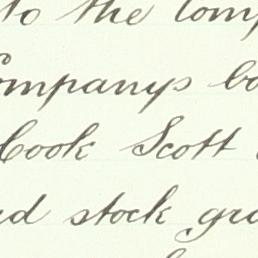 to the Comp
ompanys bo
Cook Scott
d stock gra